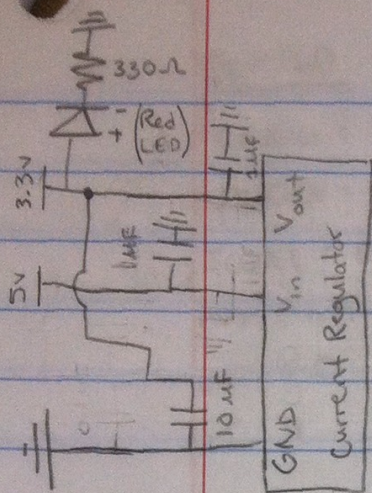 330Ω
- +
(Red
LED)
3.3V
1µF
1µF
5V
10µF
Vout
Vin
GND
Current Regulator